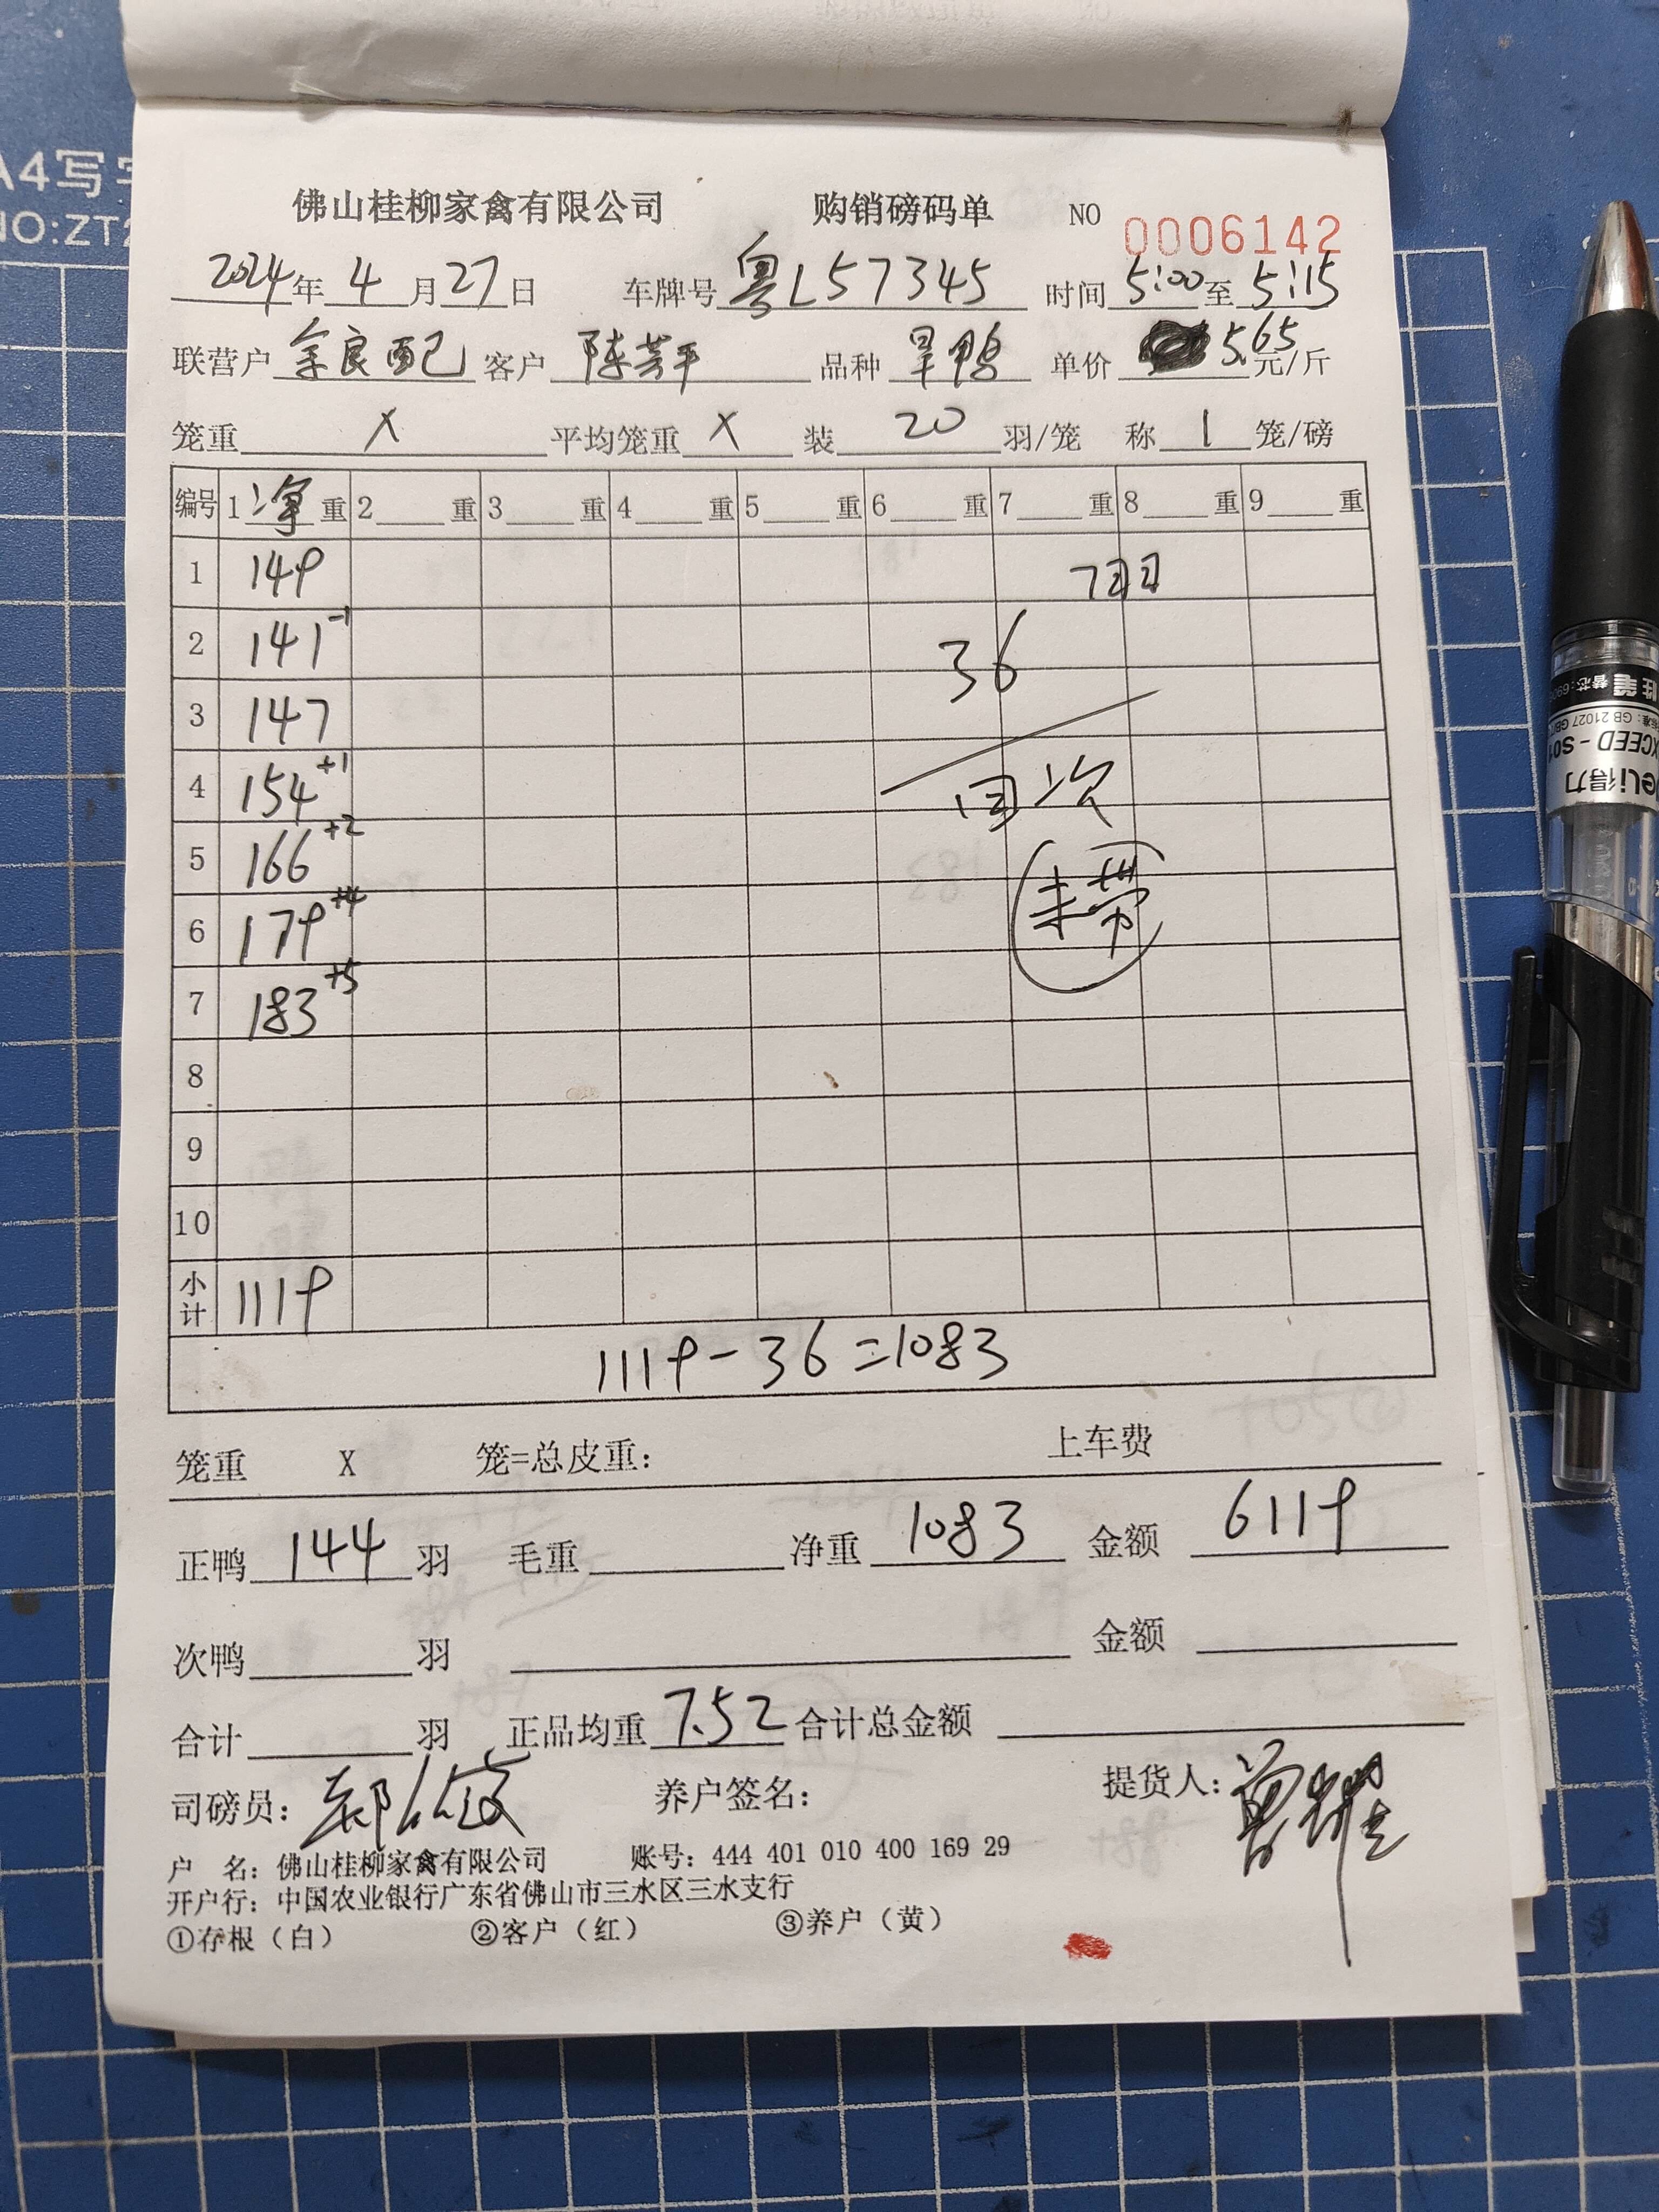 A4写字
NO:ZT2
佛山桂柳家禽有限公司 购销磅码单 NO 0006142
2024年4月27日 车牌号 粤L57345 时间 5:00 至 5:15
联营户 余良配 客户 陈芳平 品种 旱鸭 单价 5.65 元/斤
笼重 X 平均笼重 X 装 20 羽/笼 称 1 笼/磅
编号 1净重 2重 3重 4重 5重 6重 7重 8重 9重
1 149
2 141 -1 36
3 147
4 154 +1 次
5 166 +2
6 179 +4 未带
7 183 +5
8
9
10
小计 1119
1119-36=1083
笼重 X 笼=总皮重: 上车费
正鸭 144 羽 毛重 净重 1083 金额 6119
次鸭 羽 金额
合计 羽 正品均重 7.52 合计总金额
司磅员: 养户签名: 提货人:
户 名: 佛山桂柳家禽有限公司 账号: 444 401 010 400 169 29
开户行: 中国农业银行广东省佛山市三水区三水支行
①存根（白） ②客户（红） ③养户（黄）
deli得力
EXCEED-S01